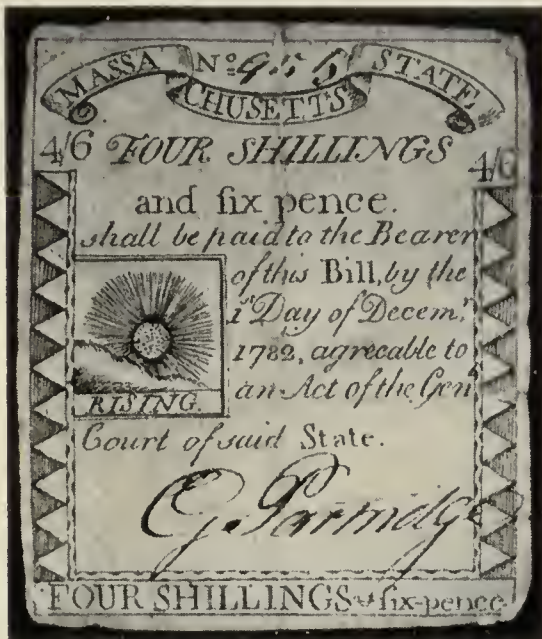 MASSA Nº 956 STATE
CHUSETTS
4/6 FOUR SHILLINGS 4/6
and six pence.
shall be paid to the Bearer
of this Bill, by the
1st Day of Decemr
1782, agreeable to
an Act of the Genl
RISING.
Court of said State.
G. Partridge
FOUR SHILLINGS & six-pence